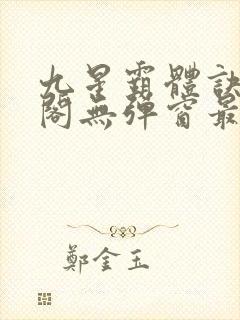 九星霸體訣
閣無彈窗最
鄭金玉